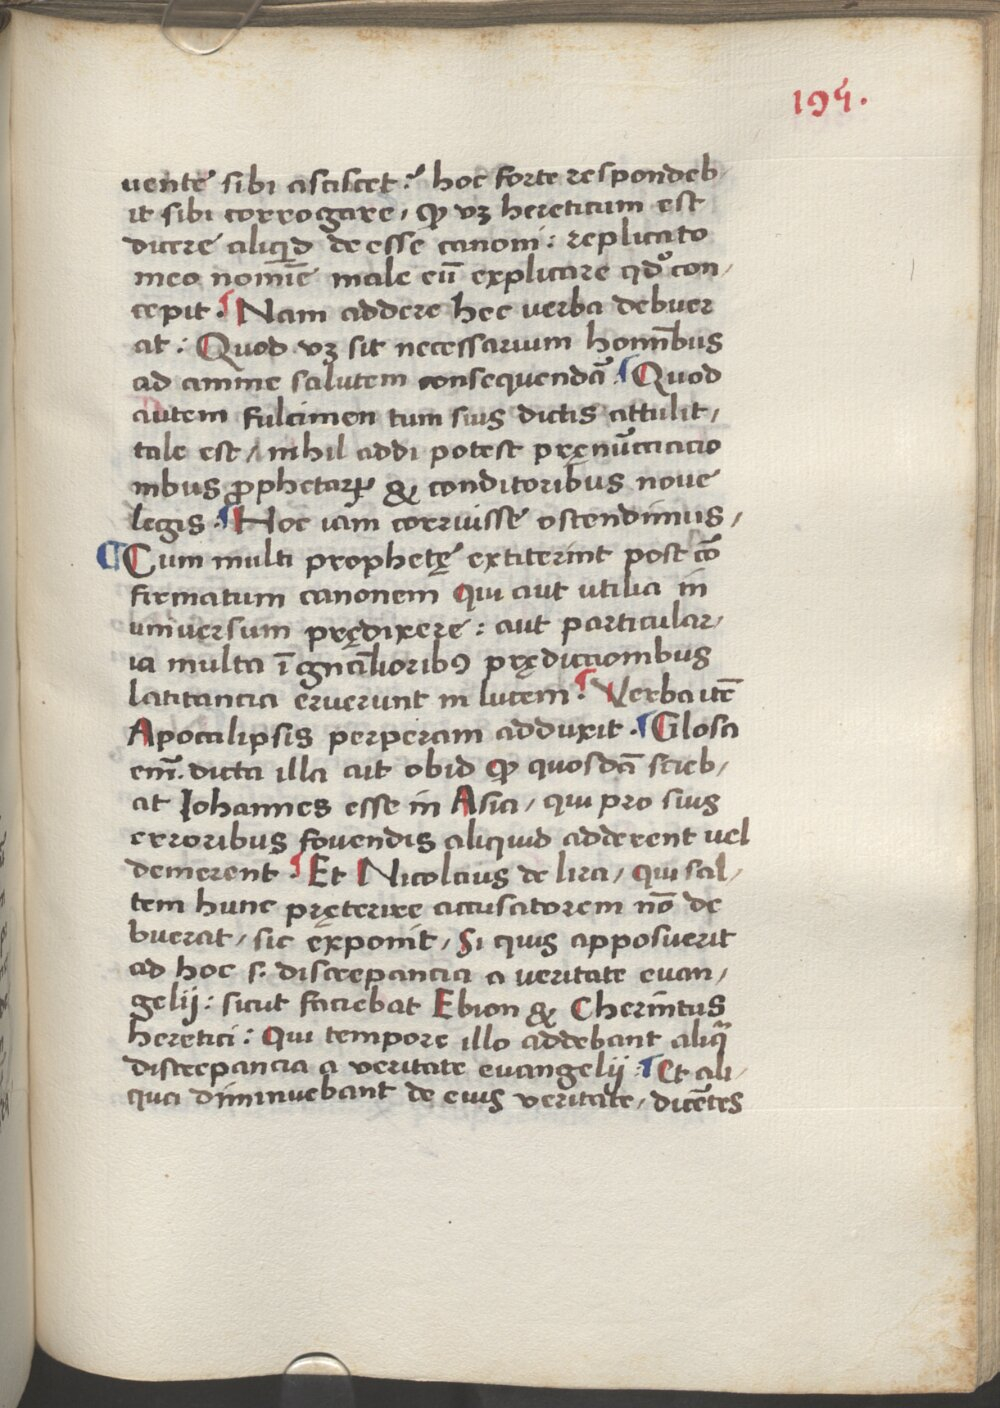 195.
uente sibi asciscet: hoc forte respondeb
it sibi corrogare, ꝙ vꝫ hereticum est
dicere aliquid deesse canoni: replicato
meo nomīe male eū explicare qdͦ con,
cepit. Nam addere hec verba debuer
at: Quod vꝫ sit necessarium homībus
ad anime salutem consequendā. Quod
autem fulcimentum suis dictis attulit,
tale est, nihil addi potest pręnūcciacio
nibus ꝓphetaꝝ & conditoribus noue
legis. Hoc iam corruisse ostendimus,
Cum multi prophetę extiterint post cō
firmatum canonem qui aut utilia in
universum prędixere: aut particular,
ia multa ī gnālioribꝰ prędiccionibus
latitancia eruerunt in lucem. Verba itē
Apocalipsis perperam adduxit. Glosa
em̄. dicta illa ait ob id ꝙ quosdā scieb,
at Iohannes esse in Asia, qui pro suis
erroribus fovendis aliquid adderent vel
demerent. Et Nicolaus de lira, qui sal,
tem hunc pręterire accusatorem nō de
buerat, sic exponit, Si quis apposuerit
ad hoc s. discrepancia a veritate euan,
gelij: sicut faciebat Ebion & Cherīntus
heretici: Qui tempore illo addebant aliqͣ
discrepancia a veritate euangelij. Et ali,
qua diminuebant de eius veritate, dicētes